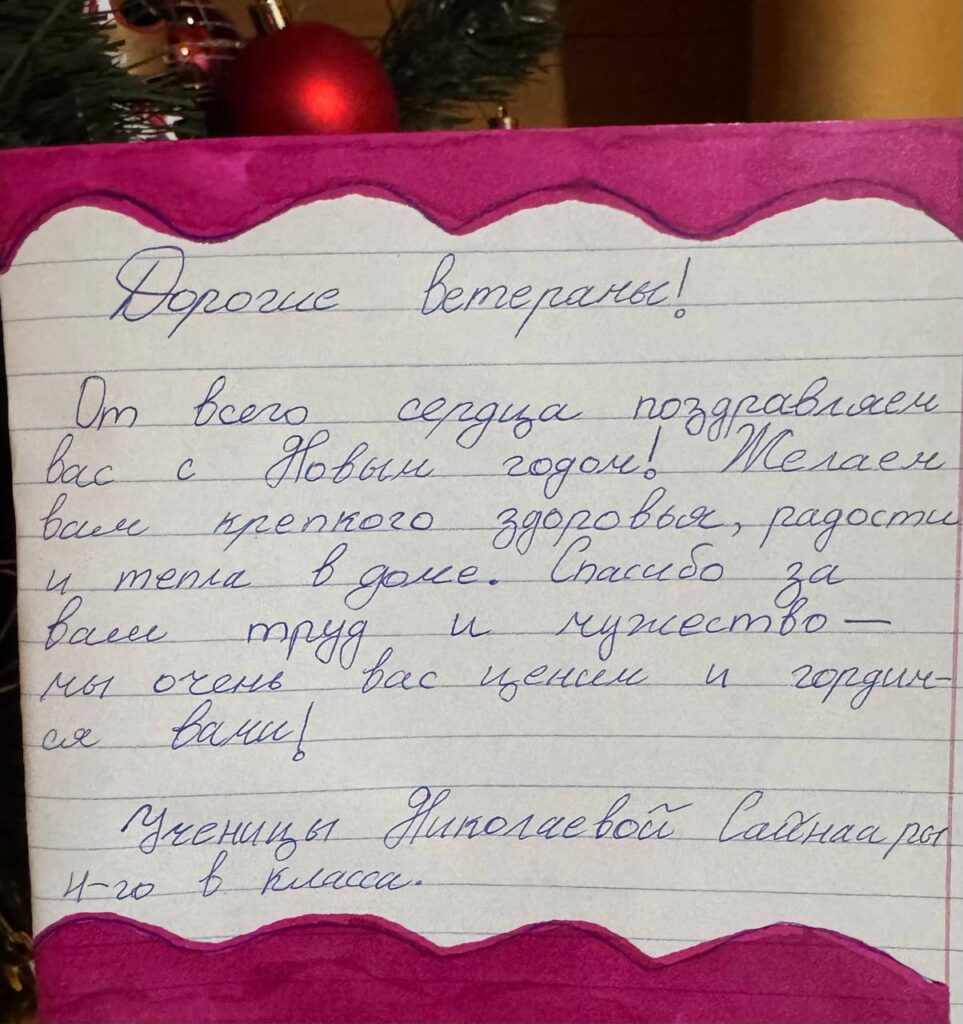 Дорогие ветераны!
От всего сердца поздравляем
вас с Новым годом! Желаем
вам крепкого здоровья, радости
и тепла в доме. Спасибо за
ваш труд и мужество —
мы очень вас ценим и гордим-
ся вами!
Ученицы Николаевой Сайнаары
4-го в класса.